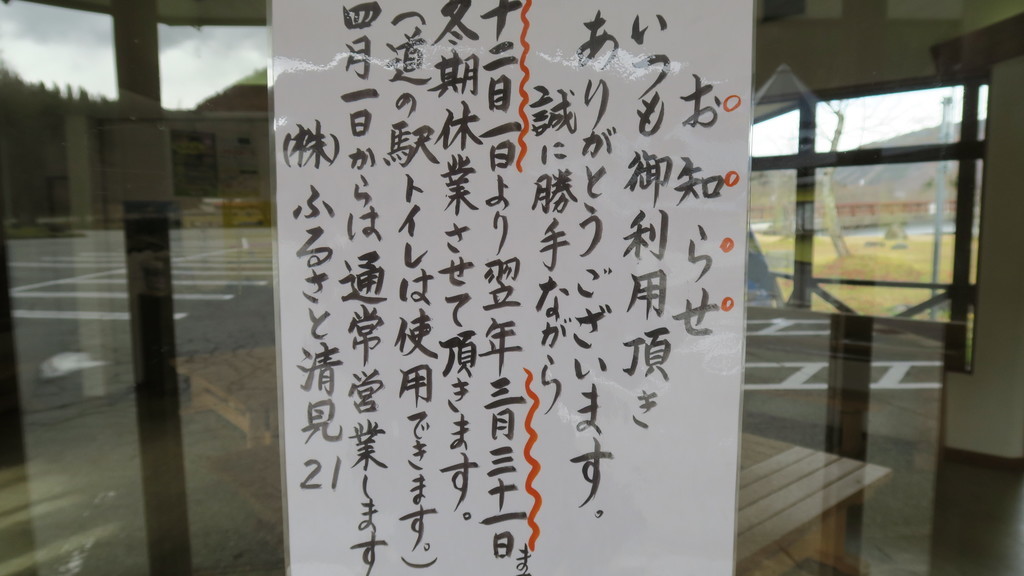 お知らせ
いつも御利用頂き
ありがとうございます。
誠に勝手ながら
十二月一日より翌年三月三十一日まで
冬期休業させて頂きます。
(道の駅トイレは使用できます。)
四月一日からは通常営業します
(株)ふるさと清見21